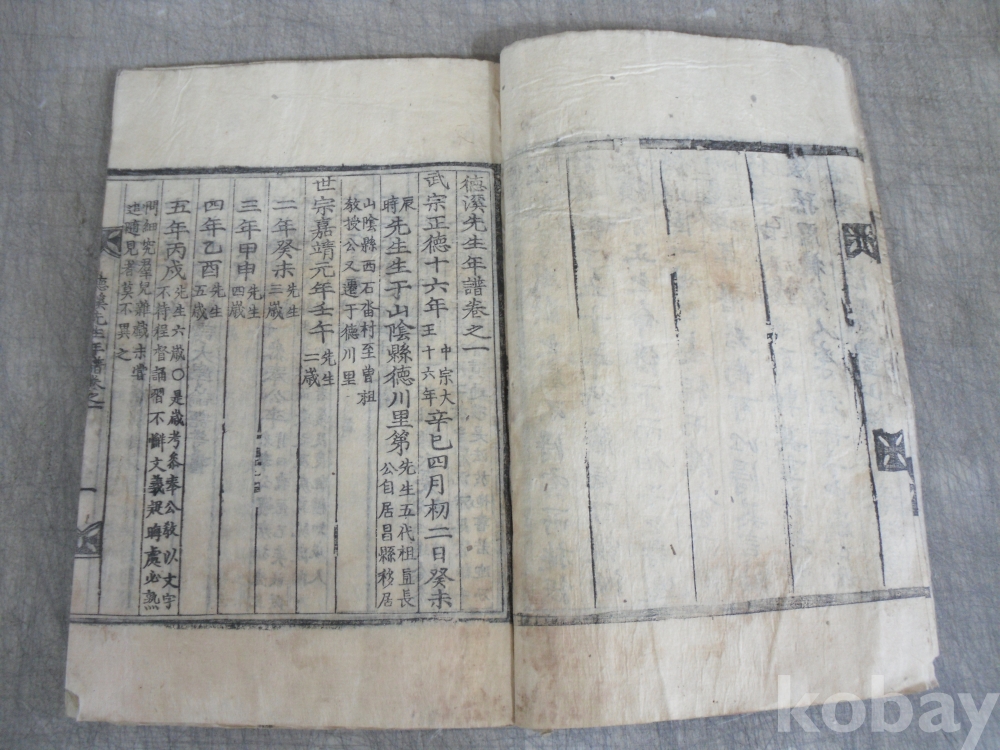 德溪先生年譜卷之一
武宗正德十六年 中宗大王十六年 辛巳四月初二日癸未
辰時先生生于山陰縣德川里第 先生五代祖直長公自居昌縣移居
山陰縣西石畓村至曾祖
敎授公又遷于德川里
世宗嘉靖元年壬午 先生二歲
二年癸未 先生三歲
三年甲申 先生四歲
四年乙酉 先生五歲
五年丙戌 先生六歲○是歲考參奉公敎以文字
不待程督誦習不懈文義疑晦處必熟
問細究群兒雜戱未嘗
逐隨見者莫不異之
德溪先生年譜卷之一
一
kobay